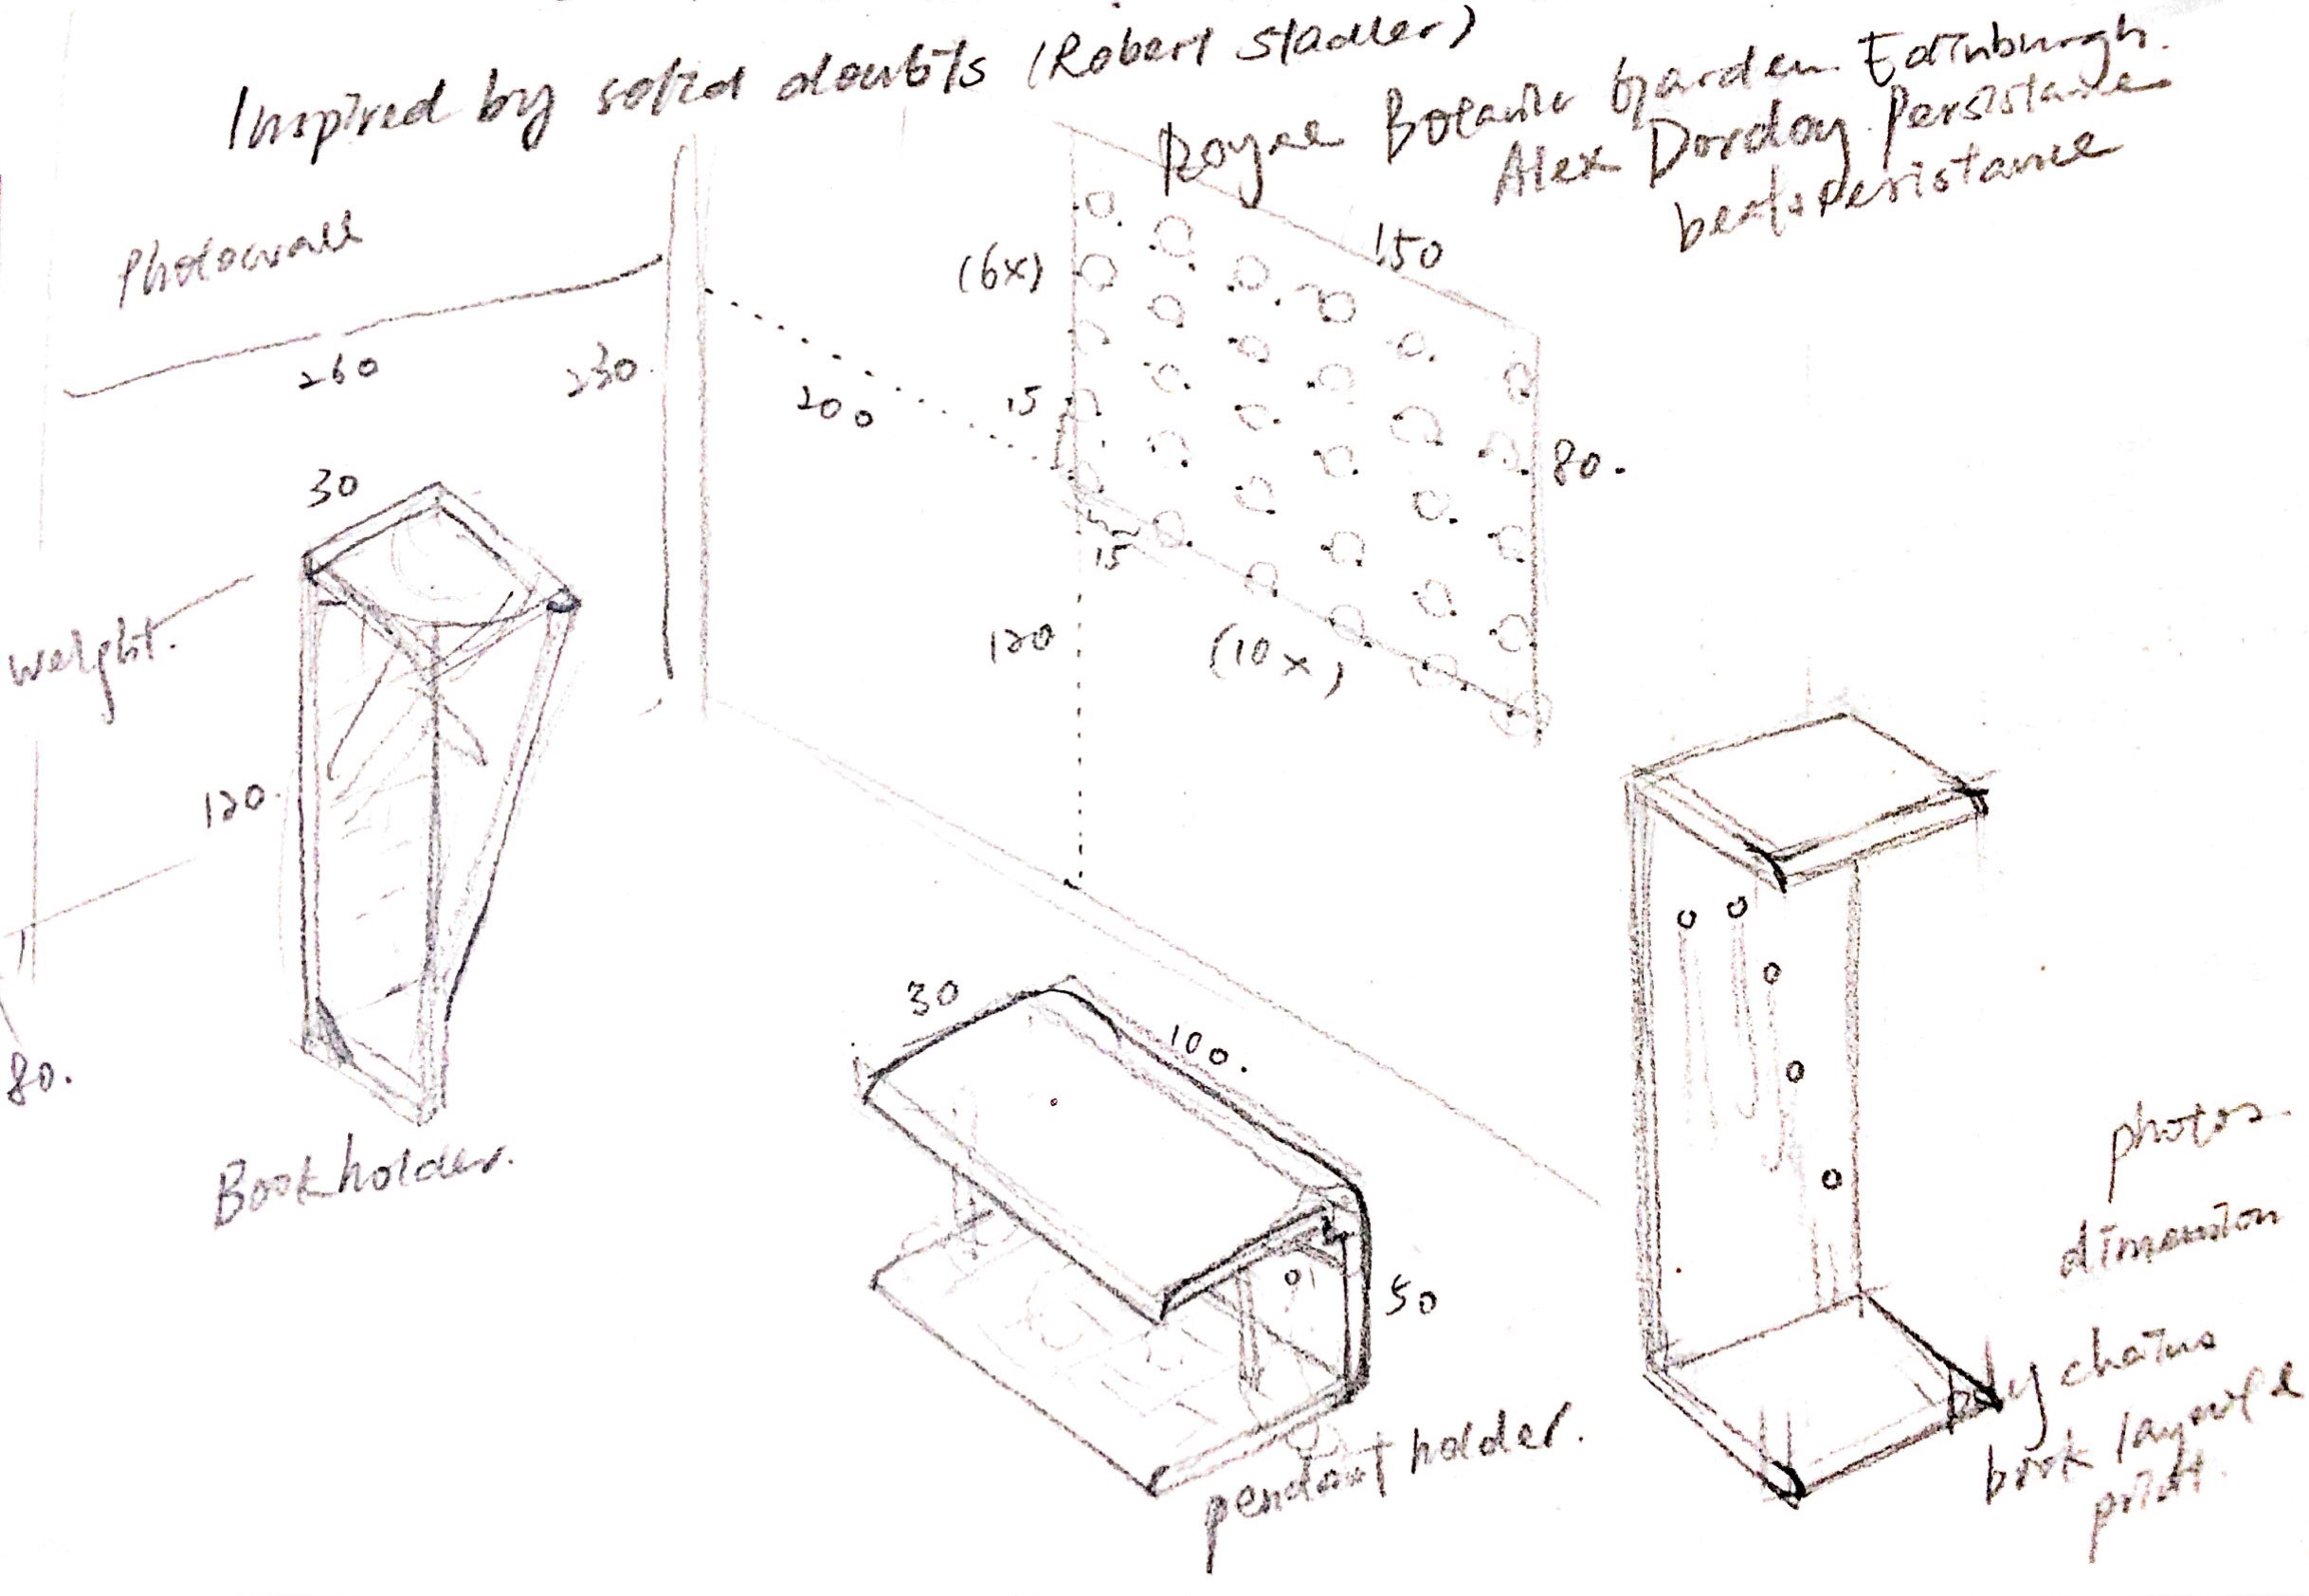 Inspired by solid doubts (Robert Stadler)
Royal Botanic Garden Edinburgh.
Alex Dordoy Persistance
beats Peristance
Photowall
260
230.
200
(6x)
150
15
80.
15
120
(10x)
30
weight.
120.
80.
Bookholder.
30
100.
50
pendant holder.
photos.
dimension
buy chains
book layout &
print.